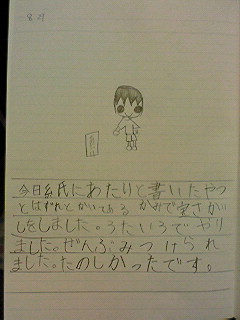 8.29
今日紙にあたりと書いたやつ
とはずれとかいてある かみで宝さが
しをしました。うたいろでやり
ました。ぜんぶみつけられ
ました。たのしかったです。